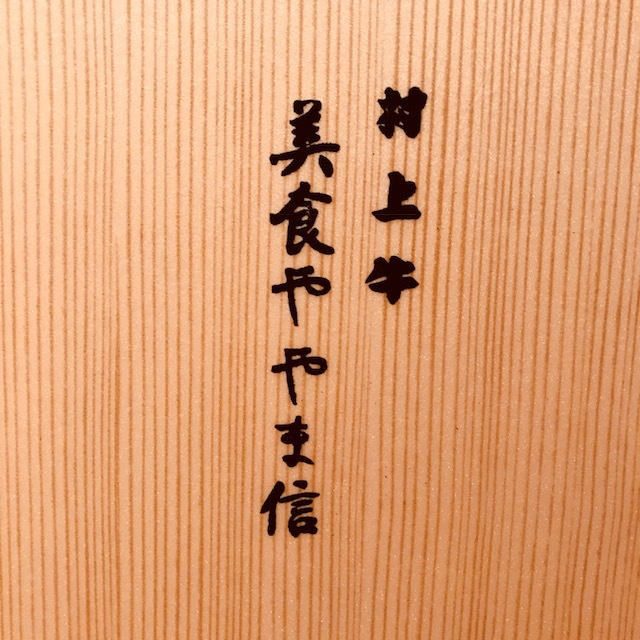 村上牛
美食ややま信